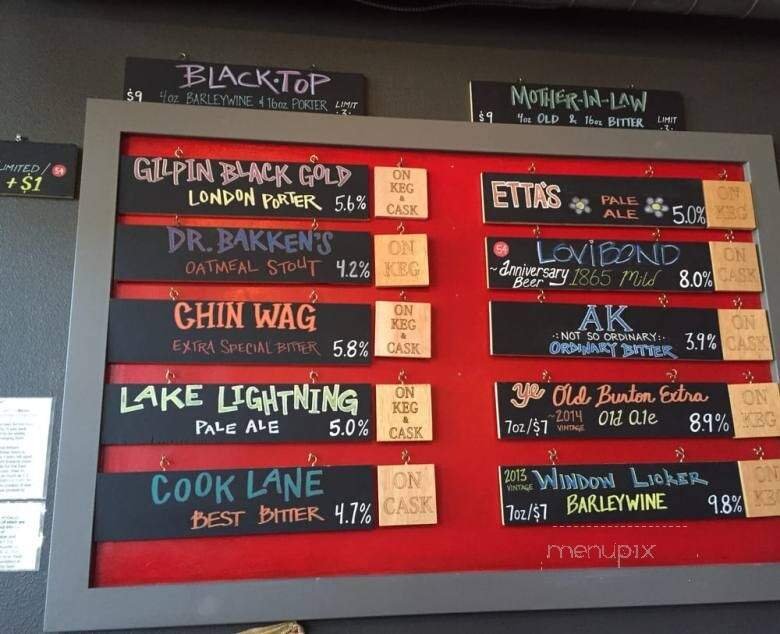 BLACK·TOP
$9 4oz BARLEYWINE & 16oz PORTER LIMIT ·3·
MOTHER-IN-LAW
$9 4oz OLD & 16oz BITTER LIMIT ·3·
LIMITED/
+$1
GILPIN BLACK GOLD
LONDON PORTER 5.6%
ON
KEG
&
CASK
DR. BAKKEN'S
OATMEAL STOUT 4.2%
ON
KEG
CHIN WAG
EXTRA SPECIAL BITTER 5.8%
ON
KEG
&
CASK
LAKE LIGHTNING
PALE ALE 5.0%
ON
KEG
&
CASK
COOK LANE
BEST BITTER 4.7%
ON
CASK
ETTA'S
PALE
ALE 5.0%
ON
KEG
LOVIBOND
~Anniversary Beer 1865 Mild 8.0%
ON
CASK
AK
·:NOT SO ORDINARY:·
ORDINARY BITTER 3.9%
ON
CASK
Ye Old Burton Extra
7oz/$7 ~2014 VINTAGE Old Ale 8.9%
ON
KEG
2013 VINTAGE WINDOW LICKER
7oz/$7 BARLEYWINE 9.8%
ON
KE
menupix